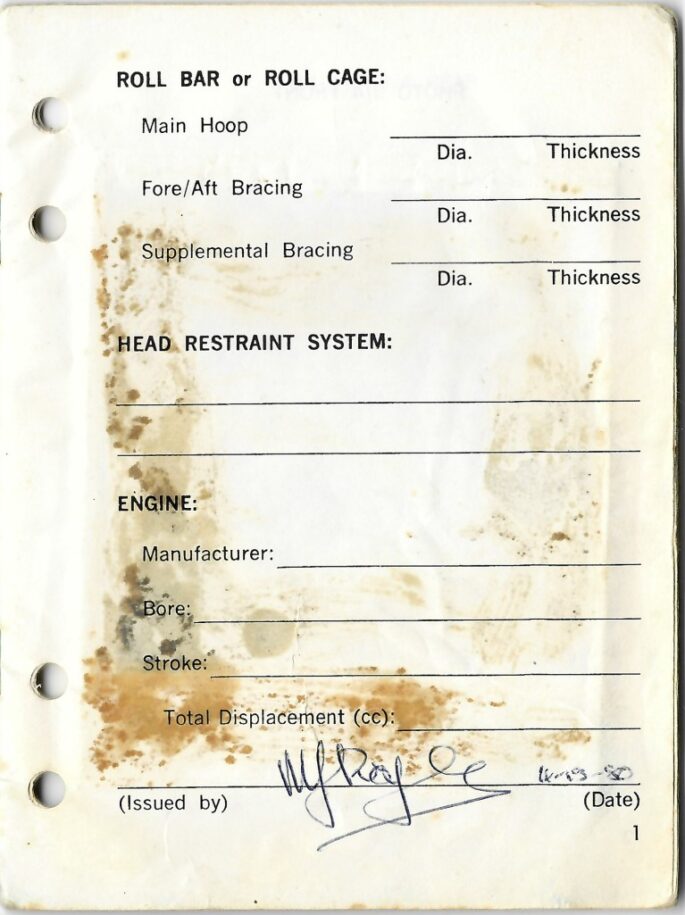 ROLL BAR or ROLL CAGE:
Main Hoop
Dia. Thickness
Fore/Aft Bracing
Dia. Thickness
Supplemental Bracing
Dia. Thickness
HEAD RESTRAINT SYSTEM:
ENGINE:
Manufacturer:
Bore:
Stroke:
Total Displacement (cc):
(Issued by) (Date)
1